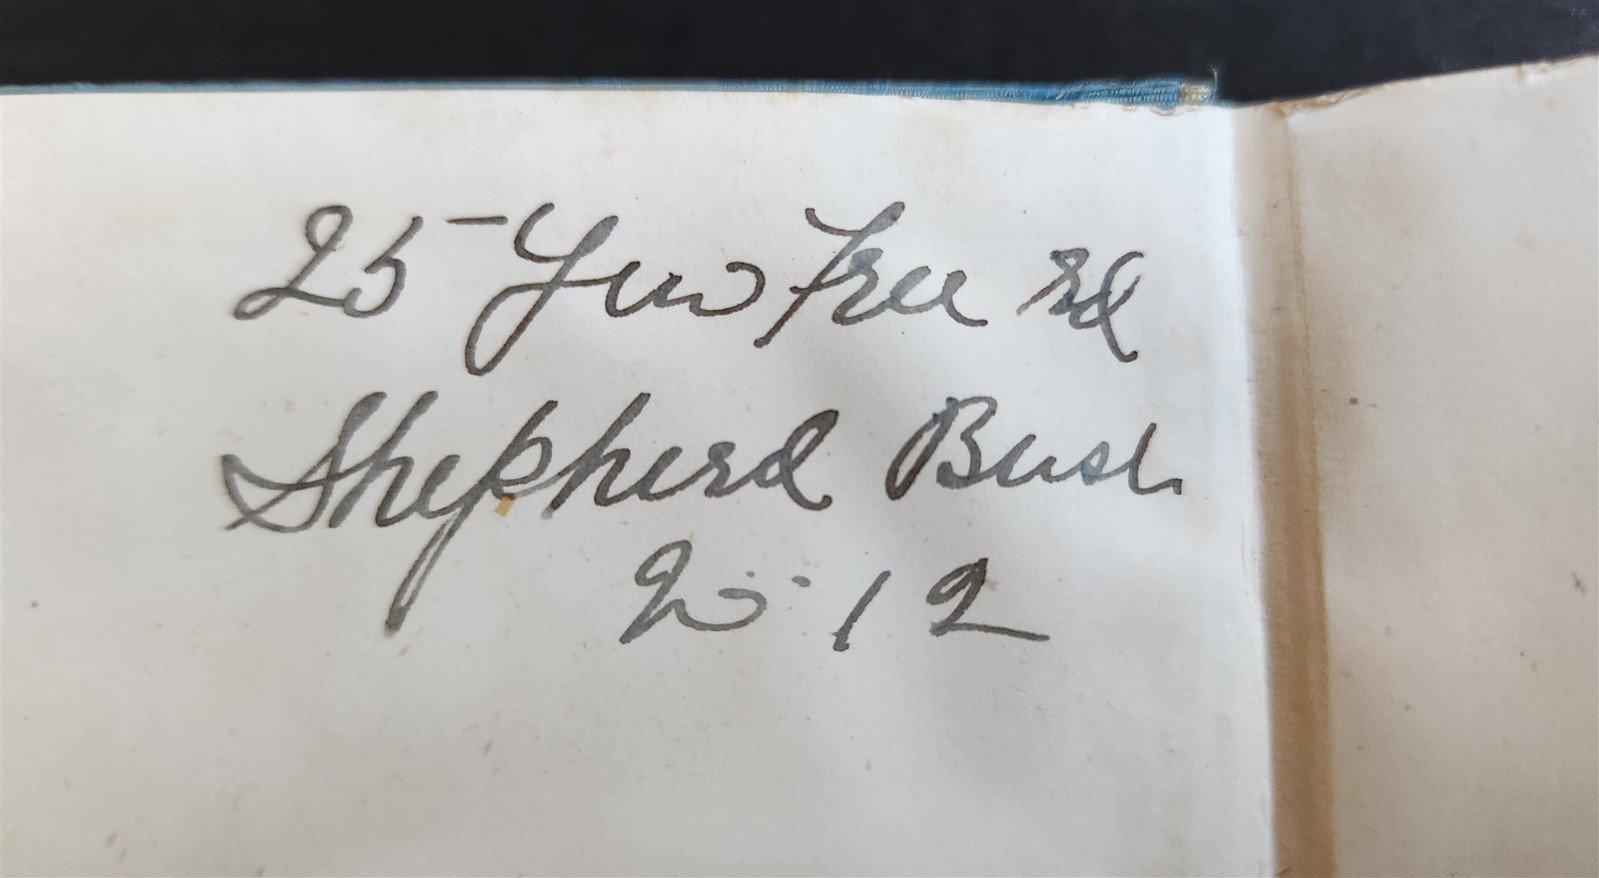 25 Yew Tree rd
Shepherd Bush
W. 12